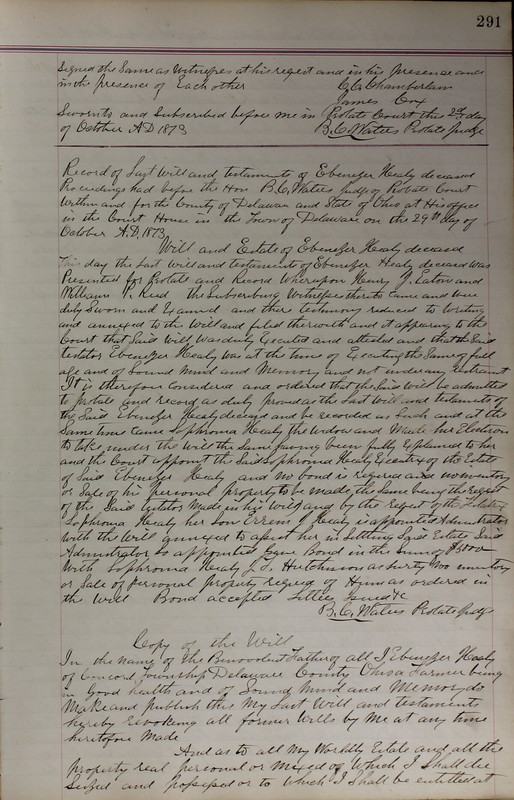 291
Signed the Same as Witnesses at his request and in his presence and
in the presence of Each other C.C. Chamberlain
James Cox
Sworn to and Subscribed before me in Probate Court this day
of October A.D 1873 B.C. Waters Probate Judge
Record of Last Will and testament of Ebenezer Healy deceased
Proceedings had before the Hon B.C. Waters Judge of Probate Court
Within and for the County of Delaware and State of Ohio at His office
in the Court House in the Town of Delaware on the 29th day of
October A.D. 1873
Will and Estate of Ebenezer Healy deceased
This day the Last Will and testament of Ebenezer Healy deceased was
Presented for Probate and Record Whereupon Henry J. Eaton and
William Reed the Subscribing Witnesses thereto came and were
duly Sworn and Examined and their testimony reduced to Writing
and annexed to the Will and filed therewith and it appearing to the
Court that Said Will was duly Executed and attested and that the Said
testator Ebenezer Healy was at the time of Executing the Same of full
age and of Sound Mind and Memory and not under any restraint
It is therefore Considered and ordered that the Said Will be admitted
to Probate and record as duly proved as the Last Will and testament of
the Said Ebenezer Healy deceased and be recorded as Such and at the
Same time Came Sophrona Healy the Widow and Made her Election
to take under the Will the Same having been fully Explained to her
and the Court appoint the Said Sophrona Healy Executrix of the Estate
of Said Ebenezer Healy and no bond is required and no inventory
or Sale of his personal property to be made, the Same being the request
of the Said testator Made in his Will and by the request of the
Sophrona Healy her Son Healy is appointed Administrator
with the Will annexed to assist her in Settling Said Estate Said
Administrator so appointed gave Bond in the sum of
With Sophrona Healy Hutchinson as Surety No inventory
or Sale of personal property required of Him as ordered in
the Will Bond accepted Letters Issued &c
B.C. Waters Probate Judge
Copy of the Will
In the name of the Benevolent Father of all I Ebenezer Healy
of Concord Township Delaware County Ohio a Farmer being
in Good health and of Sound Mind and Memory do
Make and publish this My Last Will and testament
hereby revoking all former Wills by Me at any time
heretofore Made
And as to all My Worldly Estate and all the
property real personal or Mixed of Which I Shall die
Seized and possessed or to Which I Shall be entitled at